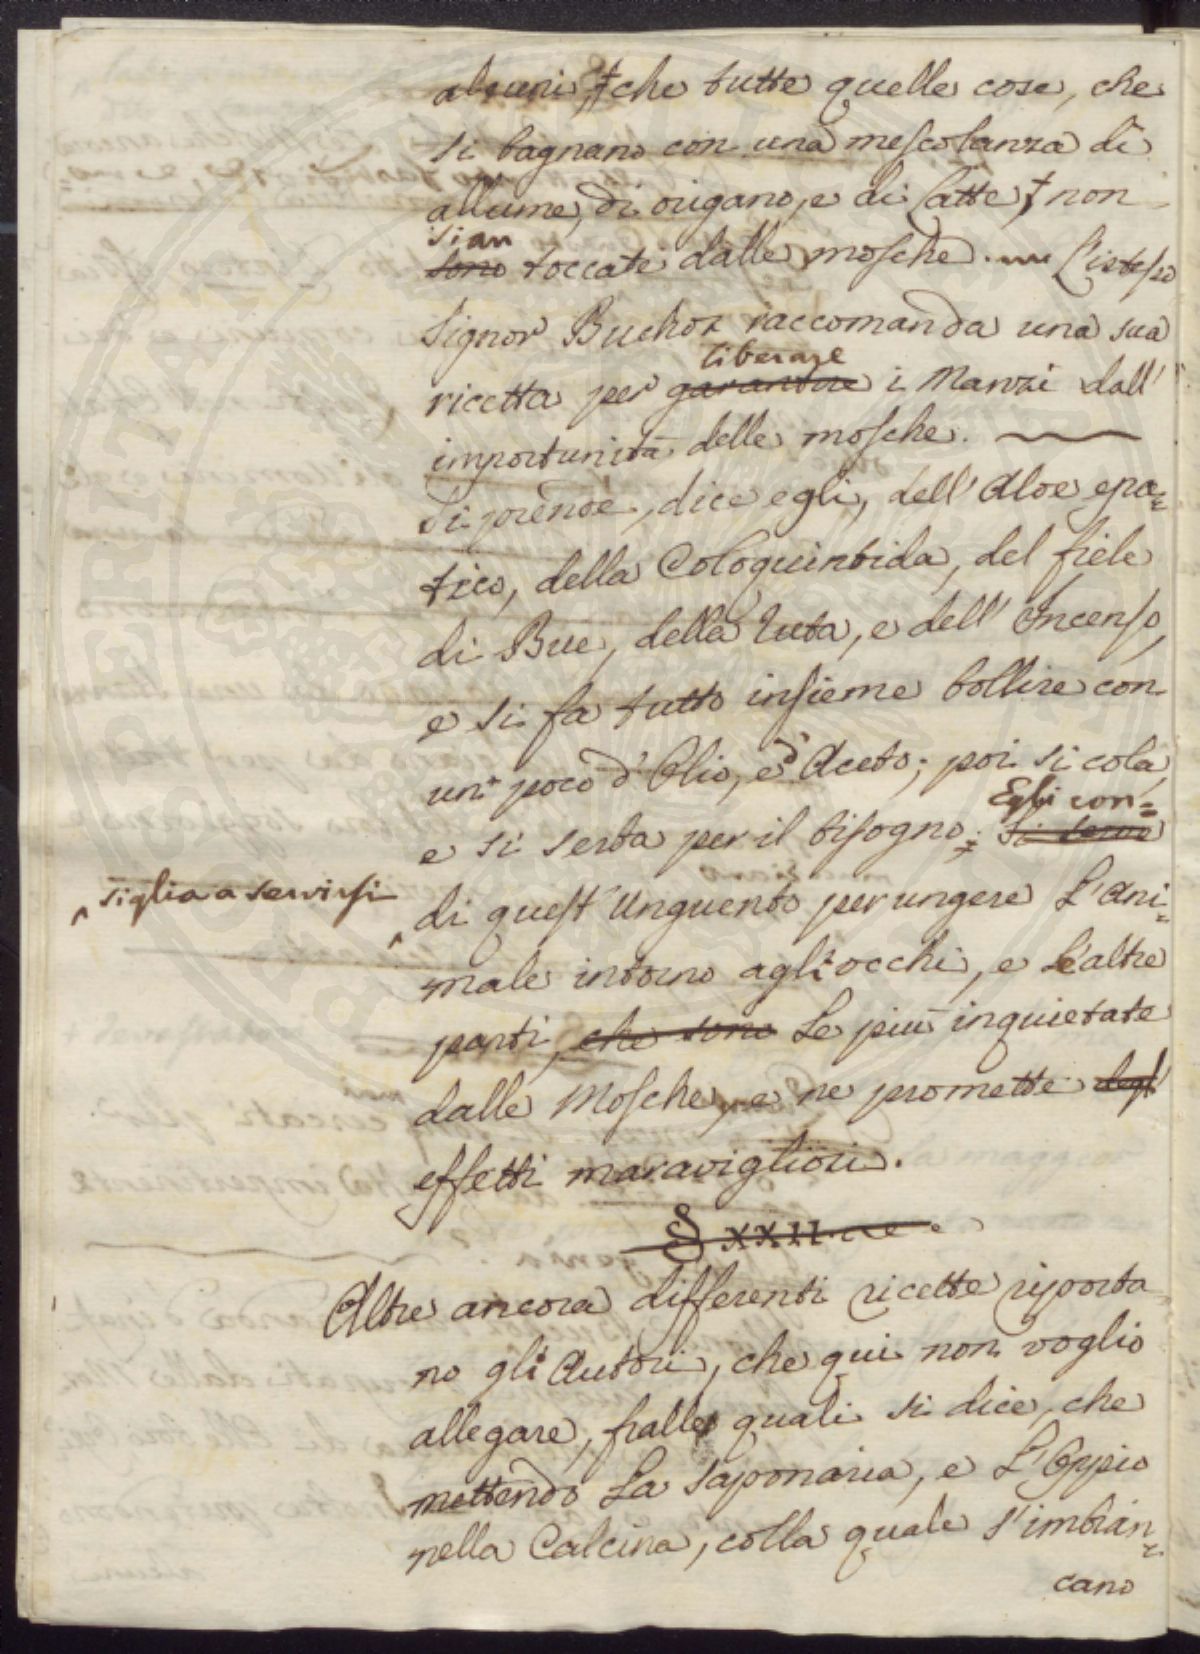 alcuni, † che tutte quelle cose, che
si bagnano con una mescolanza di
allume, di origano, e di Latte, † non
sian
sono toccate dalle mosche. L'istesso
Signor Buchoz raccomanda una sua
liberare
ricetta per garantire i Manzi dall'
importunità delle mosche.
Si prende, dice egli, dell'Aloe epa=
tico, della Coloquintida, del fiele
di Bue, della Ruta, e dell'Incenso,
e si fa tutto insieme bollire con
un poco d'Olio, e d'Aceto; poi si cola,
Egli con=
e si serba per il bisogno; si serve
siglia a servirsi
di quest'Unguento per ungere L'Ani=
male intorno agli occhi, e Le altre
parti, che sono Le più inquietate
dalle Mosche, e ne promette degl'
effetti maravigliosi.
§ XXII.
Altre ancora differenti ricette riporta=
no gli Autori, che qui non voglio
allegare, fralle quali si dice, che
mettendo La Saponaria, e L'Oppio
nella Calcina, colla quale s'imbian=
cano